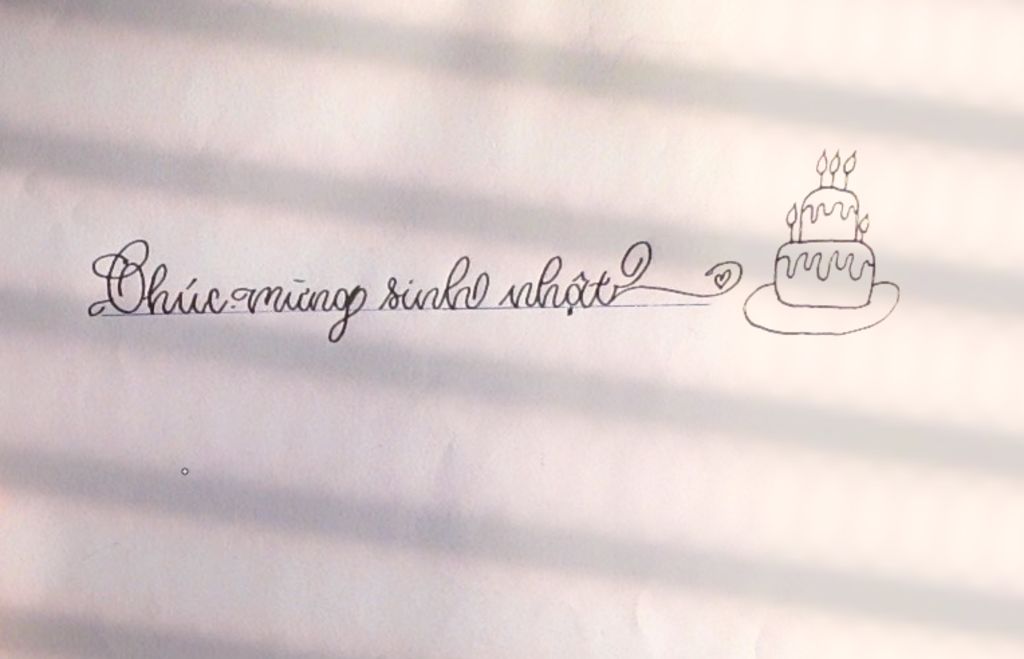 Chúc mừng sinh nhật